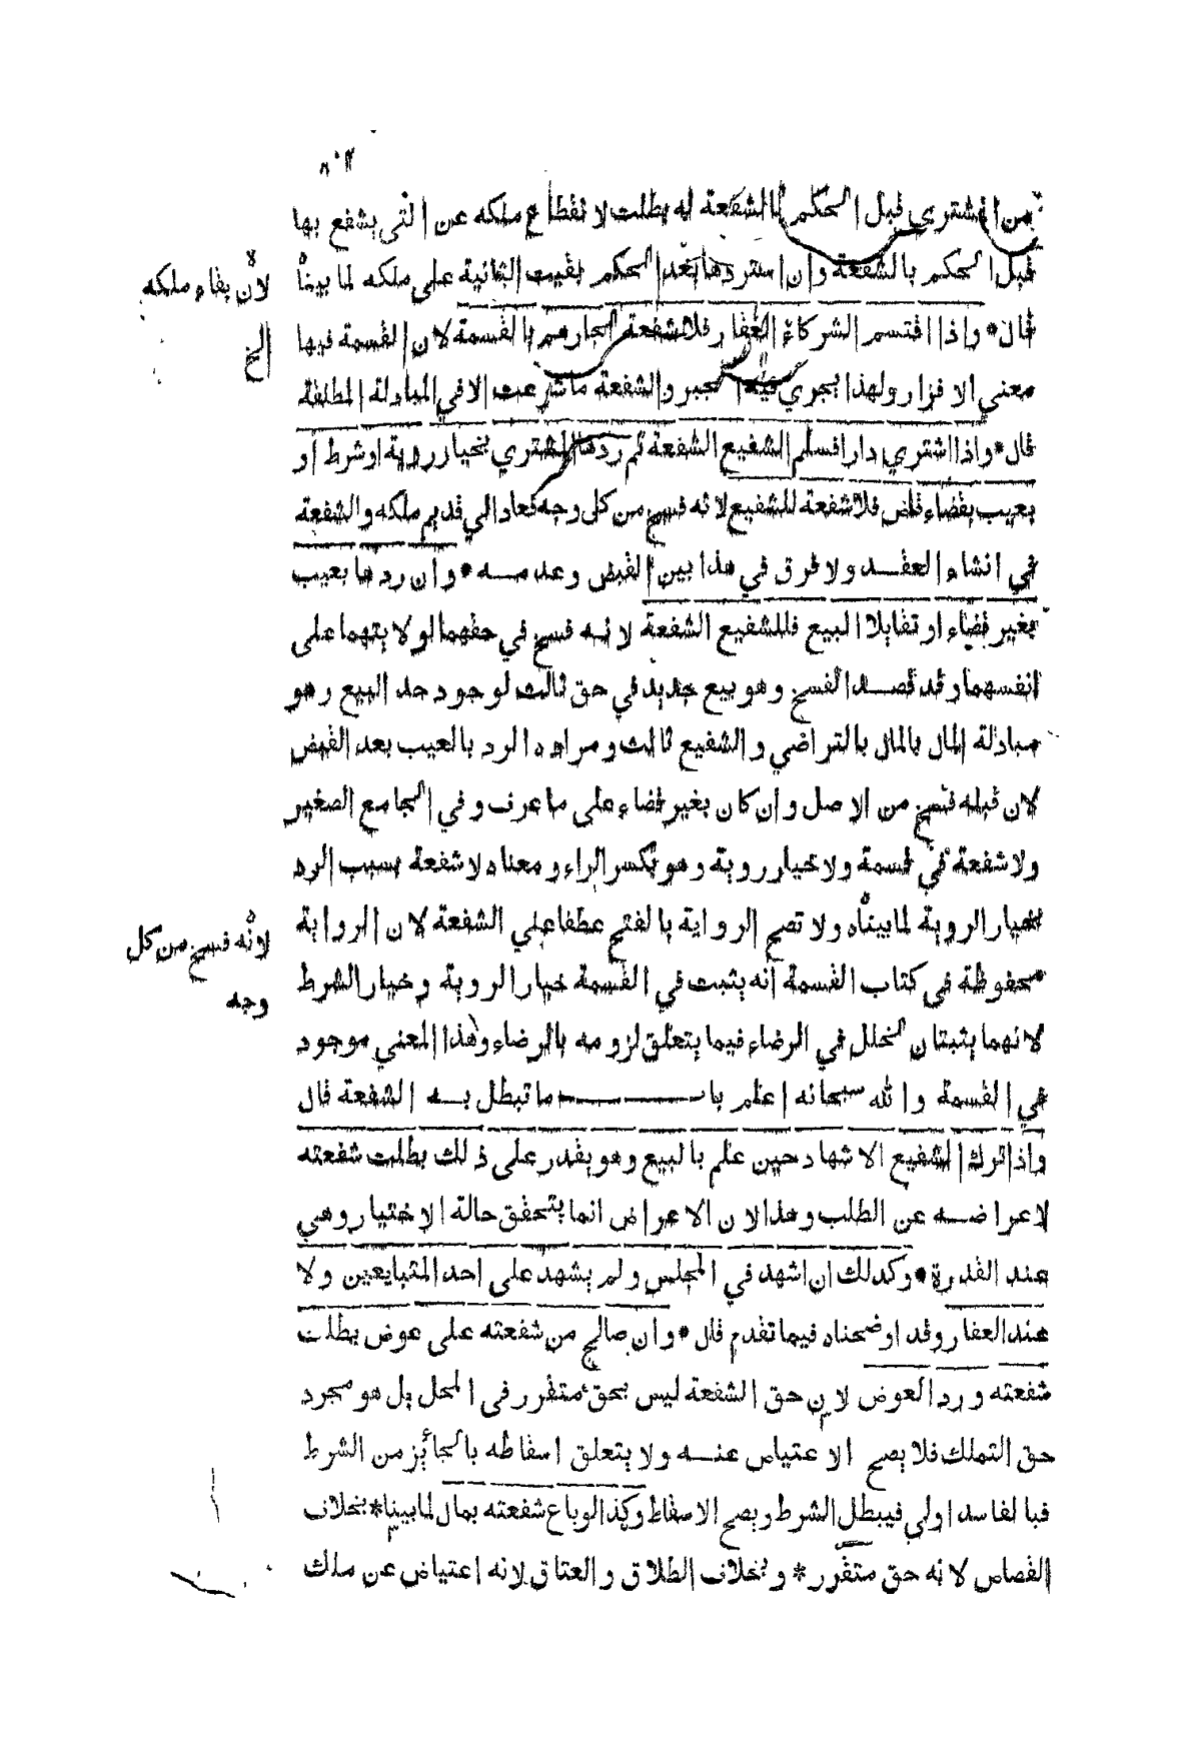 ٨٠٢
من المشتري قبل الحكم بالشفعة له بطلت لانقطاع ملكه عن التي يشفع بها
قبل الحكم بالشفعة وان استردها بعد الحكم بقيت الثانية على ملكه لما بينا
قال * واذا اقتسم الشركاء العقار فلا شفعة لجارهم بالقسمة لان القسمة فيها
معني الافراز ولهذا يجري فيه الجبر والشفعة ما شرعت الا في المبادلة المطلقة
قال * واذا اشتري دارا فسلم الشفيع الشفعة ثم ردها المشتري بخيار روية او شرط او
بعيب بقضاء قاض فلا شفعة للشفيع لانه فسخ من كل وجه فعاد الي قديم ملكه والشفعة
في انشاء العقد ولا فرق في هذا بين القبض وعدمه * وان ردها بعيب
بغير قضاء او تقايلا البيع فللشفيع الشفعة لانه فسخ في حقهما لولايتهما على
انفسهما وقد قصد الفسخ وهو بيع جديد في حق ثالث لوجود حد البيع وهو
مبادلة المال بالمال بالتراضي والشفيع ثالث ومراده الرد بالعيب بعد القبض
لان قبله فسخ من الاصل وان كان بغير قضاء على ما عرف وفي الجامع الصغير
ولا شفعة في قسمة ولا خيار روية وهو بكسر الراء ومعناه لا شفعة بسبب الرد
بخيار الروية لما بيناه ولا تصح الرواية بالفتح عطفا علي الشفعة لان الرواية
محفوظة في كتاب القسمة انه يثبت في القسمة خيار الروية وخيار الشرط
لانهما يثبتان لخلل في الرضاء فيما يتعلق لزومه بالرضاء وهذا المعني موجود
في القسمة والله سبحانه اعلم باب ما تبطل به الشفعة قال
واذا ترك الشفيع الاشهاد حين علم بالبيع وهو يقدر على ذلك بطلت شفعته
لاعراضه عن الطلب وهذا لان الاعراض انما يتحقق حالة الاختيار وهي
عند القدرة * وكذلك ان اشهد في المجلس ولم يشهد على احد المتبايعين ولا
عند العقار وقد اوضحناه فيما تقدم قال * وان صالح من شفعته على عوض بطلت
شفعته ورد العوض لان حق الشفعة ليس بحق متقرر في المحل بل هو مجرد
حق التملك فلا يصح الاعتياض عنه ولا يتعلق اسقاطه بالجائز من الشرط
فبالفاسد اولي فيبطل الشرط ويصح الاسقاط وكذا لو باع شفعته بمال لما بينا * بخلاف
القصاص لانه حق متقرر * وبخلاف الطلاق والعتاق لانه اعتياض عن ملك
لان بقاء ملكه
الخ
لانه فسخ من كل
وجه